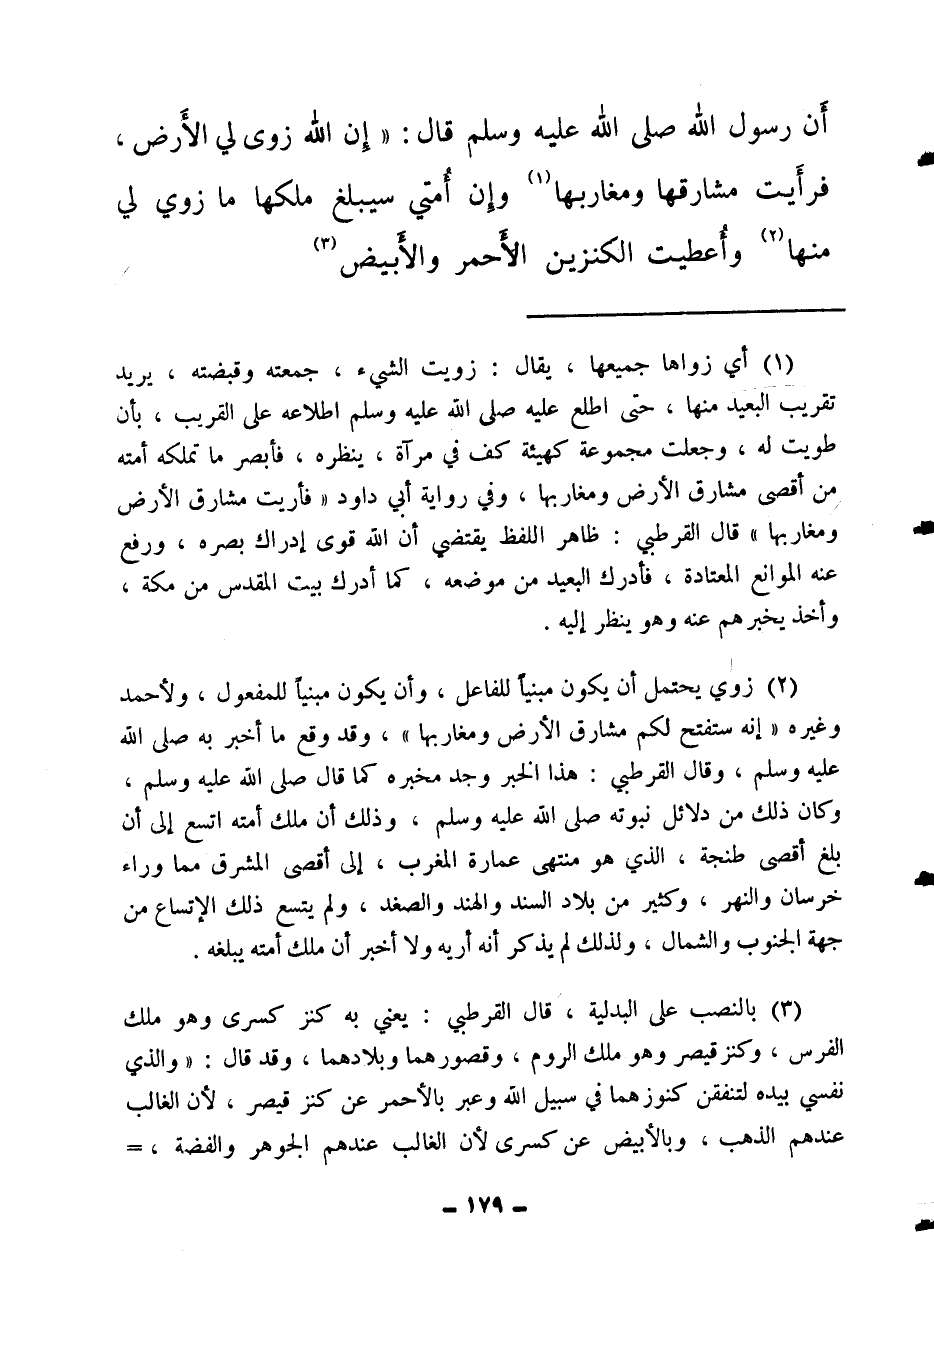 أن رسول الله صلى الله عليه وسلم قال : « إن الله زوى لي الأرض ،
فرأيت مشارقها ومغاربها(١) وإن أُمتي سيبلغ ملكها ما زوي لي
منها(٢) وأُعطيت الكنزين الأحمر والأبيض(٣)
(١) أي زواها جميعها ، يقال : زويت الشيء ، جمعته وقبضته ، يريد
تقريب البعيد منها ، حتى اطلع عليه صلى الله عليه وسلم اطلاعه على القريب ، بأن
طويت له ، وجعلت مجموعة كهيئة كف في مرآة ، ينظره ، فأبصر ما تملكه أمته
من أقصى مشارق الأرض ومغاربها ، وفي رواية أبي داود « فأريت مشارق الأرض
ومغاربها » قال القرطبي : ظاهر اللفظ يقتضي أن الله قوى إدراك بصره ، ورفع
عنه الموانع المعتادة ، فأدرك البعيد من موضعه ، كما أدرك بيت المقدس من مكة ،
وأخذ يخبرهم عنه وهو ينظر إليه .
(٢) زوي يحتمل أن يكون مبنياً للفاعل ، وأن يكون مبنياً للمفعول ، ولأحمد
وغيره « إنه ستفتح لكم مشارق الأرض ومغاربها » ، وقد وقع ما أخبر به صلى الله
عليه وسلم ، وقال القرطبي : هذا الخبر وجد مخبره كما قال صلى الله عليه وسلم ،
وكان ذلك من دلائل نبوته صلى الله عليه وسلم ، وذلك أن ملك أمته اتسع إلى أن
بلغ أقصى طنجة ، الذي هو منتهى عمارة المغرب ، إلى أقصى المشرق مما وراء
خرسان والنهر ، وكثير من بلاد السند والهند والصغد ، ولم يتسع ذلك الإتساع من
جهة الجنوب والشمال ، ولذلك لم يذكر أنه أريه ولا أخبر أن ملك أمته يبلغه .
(٣) بالنصب على البدلية ، قال القرطبي : يعني به كنز كسرى وهو ملك
الفرس ، وكنز قيصر وهو ملك الروم ، وقصورهما وبلادهما ، وقد قال : « والذي
نفسي بيده لتنفقن كنوزهما في سبيل الله وعبر بالأحمر عن كنز قيصر ، لأن الغالب
عندهم الذهب ، وبالأبيض عن كسرى لأن الغالب عندهم الجوهر والفضة ، =
- ١٧٩ -